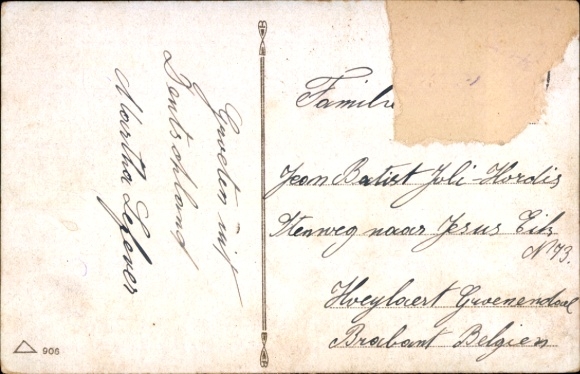 Groeten uit
Deutschland
Martha Lefever
Familie
Jean Batist Joli-Hordis
Stenweg naar Jesus Eik
N 73.
Hoeylaert Groenendael
Brabant Belgien
906